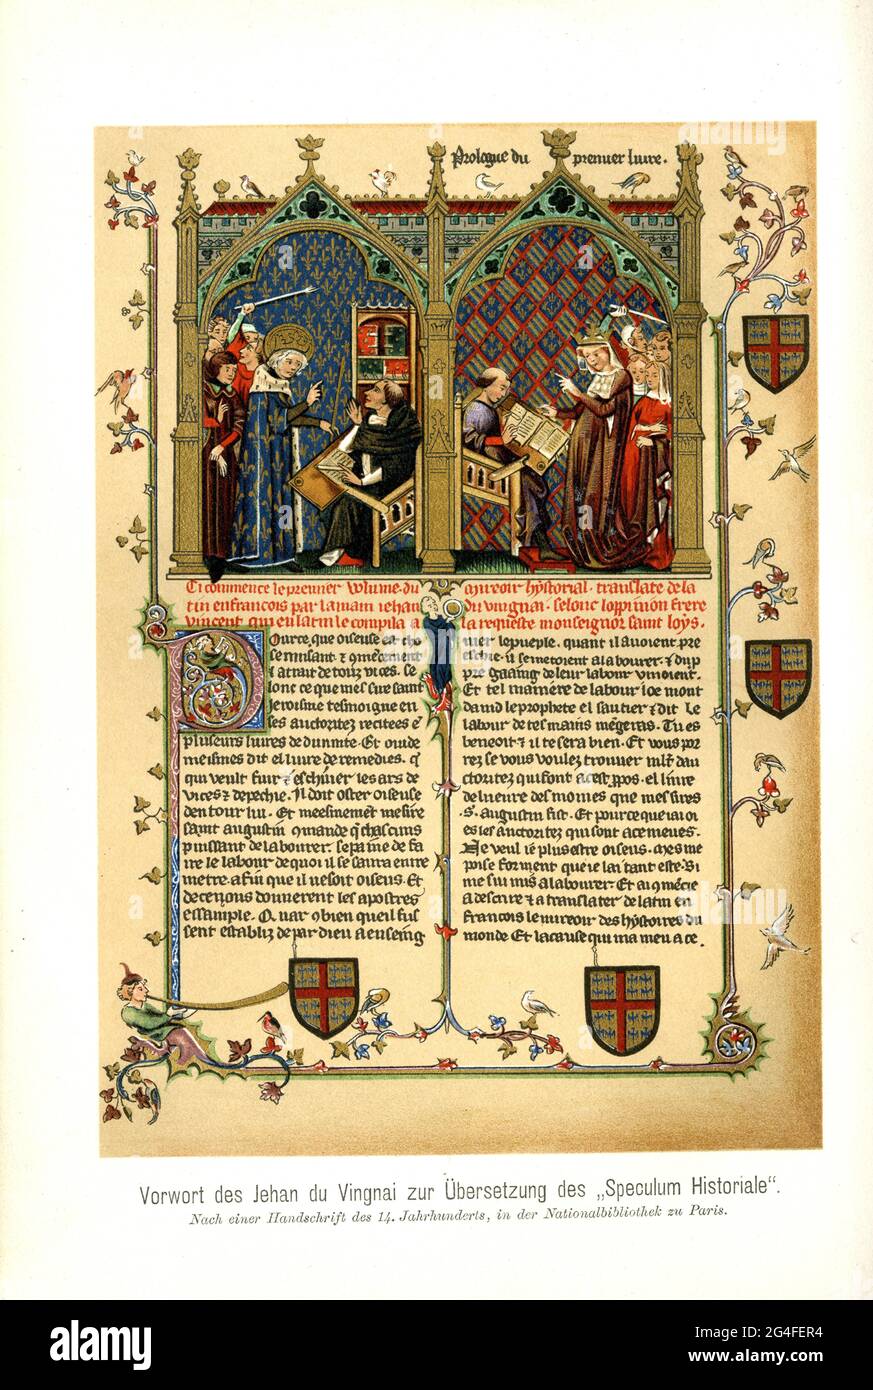 Prologue du premier livre.
Ci commence le premier volume du mireoir hystorial. translate de la
tin en francois par la main iehan du vingnai. selonc loppinion frere
vincent qui en latin le compila a la requeste monseigneur saint loys.
Pource que oiseuse est cho
se nuisant
et atrait de touz vices. se
lonc ce que messire saint
Jerosme tesmoigne en
ses auctoritez recitees
pluseurs liures de diuinite. Et ouide
meismes dit el liure de remedies. q̄
qui veult fuir et eschiuer les ars de
vices
den tour lui. Et meesmement mesire
saint augustin
puissant de labourer. se paine de fa
ire le labour de quoi il se saura entre
metre. a fin que il ne soit oiseus. Et
de ce nous donnerent les apostres
essample. Quar
sent establiz de par dieu a enseing
nier le pueple. quant il auoient pre
eschie. il se metoient a labourer.
de leur labour viuoient.
Et tel maniere de labour loe mont
dauid le prophete el sautier et dit le
labour de tes mains mengeras. Tu es
beneoit et il te sera bien. Et vous por
rez se vous voulez trouuer
ctoritez qui font a cest
de leuure des moines que messires
.s. augustin fist. Et pource que iai oi
es les auctoritez qui sont
Ne veul ie plus estre oiseus.
poise forment que ie lai tant este. Si
me sui mis a labourer. Et ai
a descrire et a translater de latin en
francois le mireoir des hystoires du
monde Et la cause qui ma meu a ce.
Vorwort des Jehan du Vingnai zur Übersetzung des „Speculum Historiale“.
Nach einer Handschrift des 14. Jahrhunderts, in der Nationalbibliothek zu Paris.
alamy
Image ID: 2G4FER4
www.alamy.com